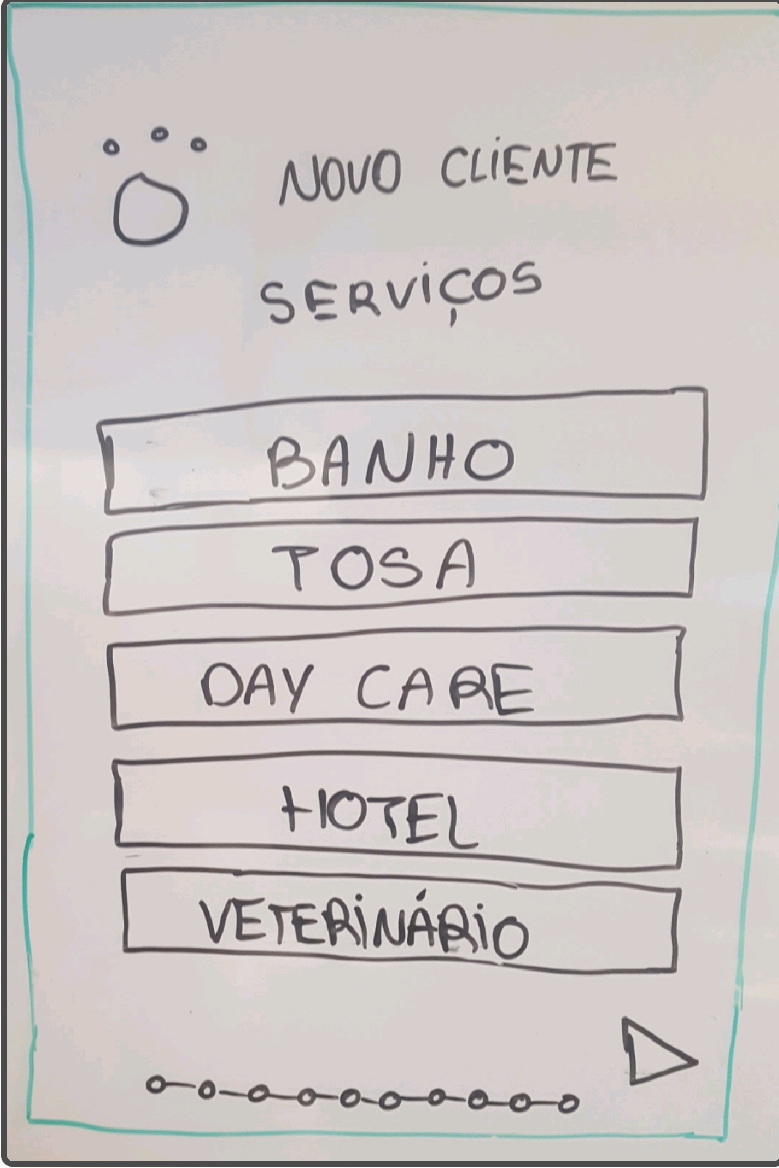 NOVO CLIENTE
SERVIÇOS
BANHO
TOSA
DAY CARE
HOTEL
VETERINÁRIO